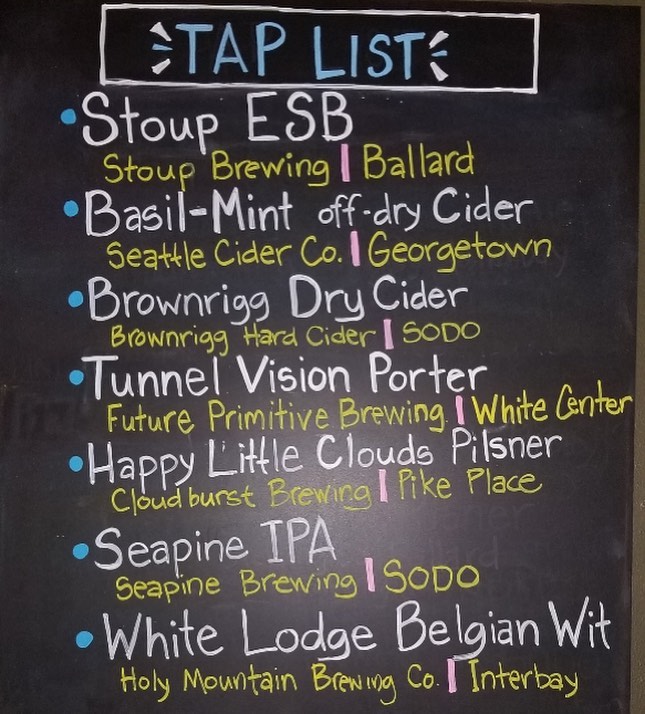 TAP LIST
•Stoup ESB
Stoup Brewing | Ballard
•Basil-Mint off-dry Cider
Seattle Cider Co. | Georgetown
•Brownrigg Dry Cider
Brownrigg Hard Cider | SODO
•Tunnel Vision Porter
Future Primitive Brewing. | White Center
•Happy Little Clouds Pilsner
Cloudburst Brewing | Pike Place
•Seapine IPA
Seapine Brewing | SODO
•White Lodge Belgian Wit
Holy Mountain Brewing Co. | Interbay